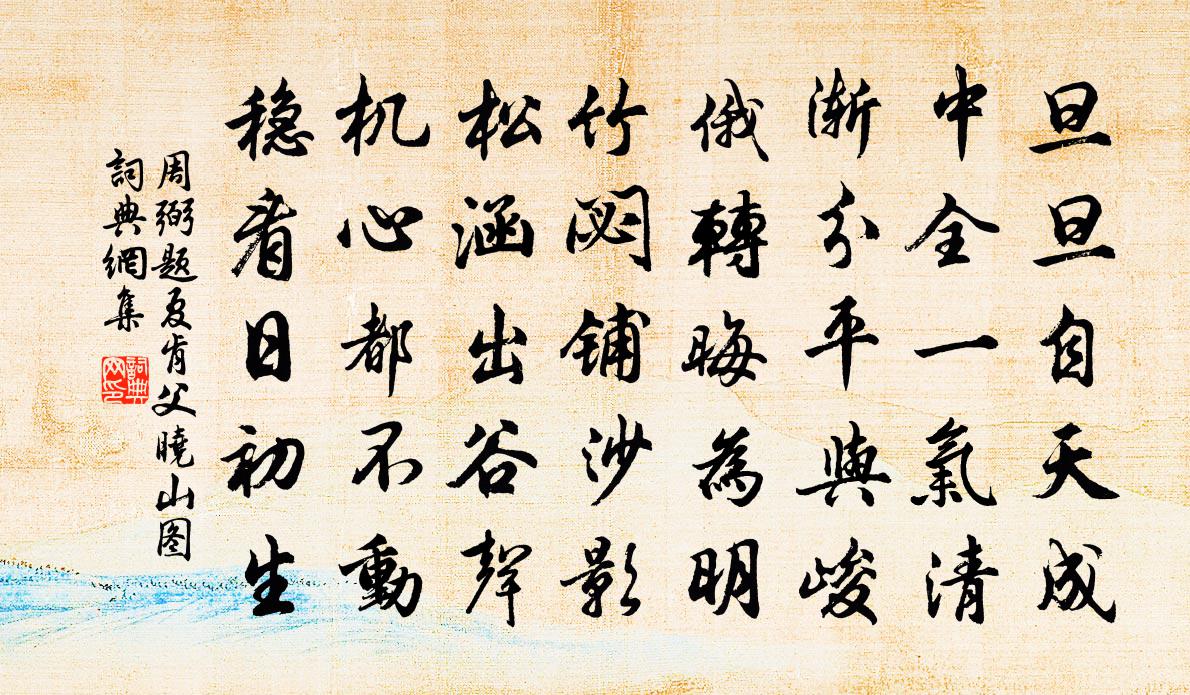 旦旦自天成
中全一氣清
渐分平與峻
俄轉晦為明
竹閟铺沙影
松涵出谷聲
机心都不動
稳看日初生
周弼题夏肯父曉山图
詞典網集
詞典网印